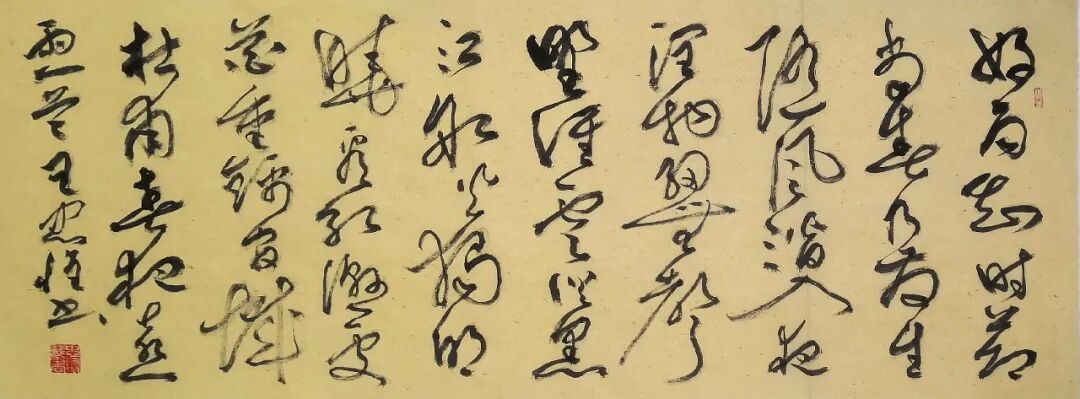 好雨知时节
当春乃发生
随风潜入夜
润物细无声
野径云俱黑
江船火独明
晓看红湿处
花重锦官城
杜甫春夜喜
雨 王忠书